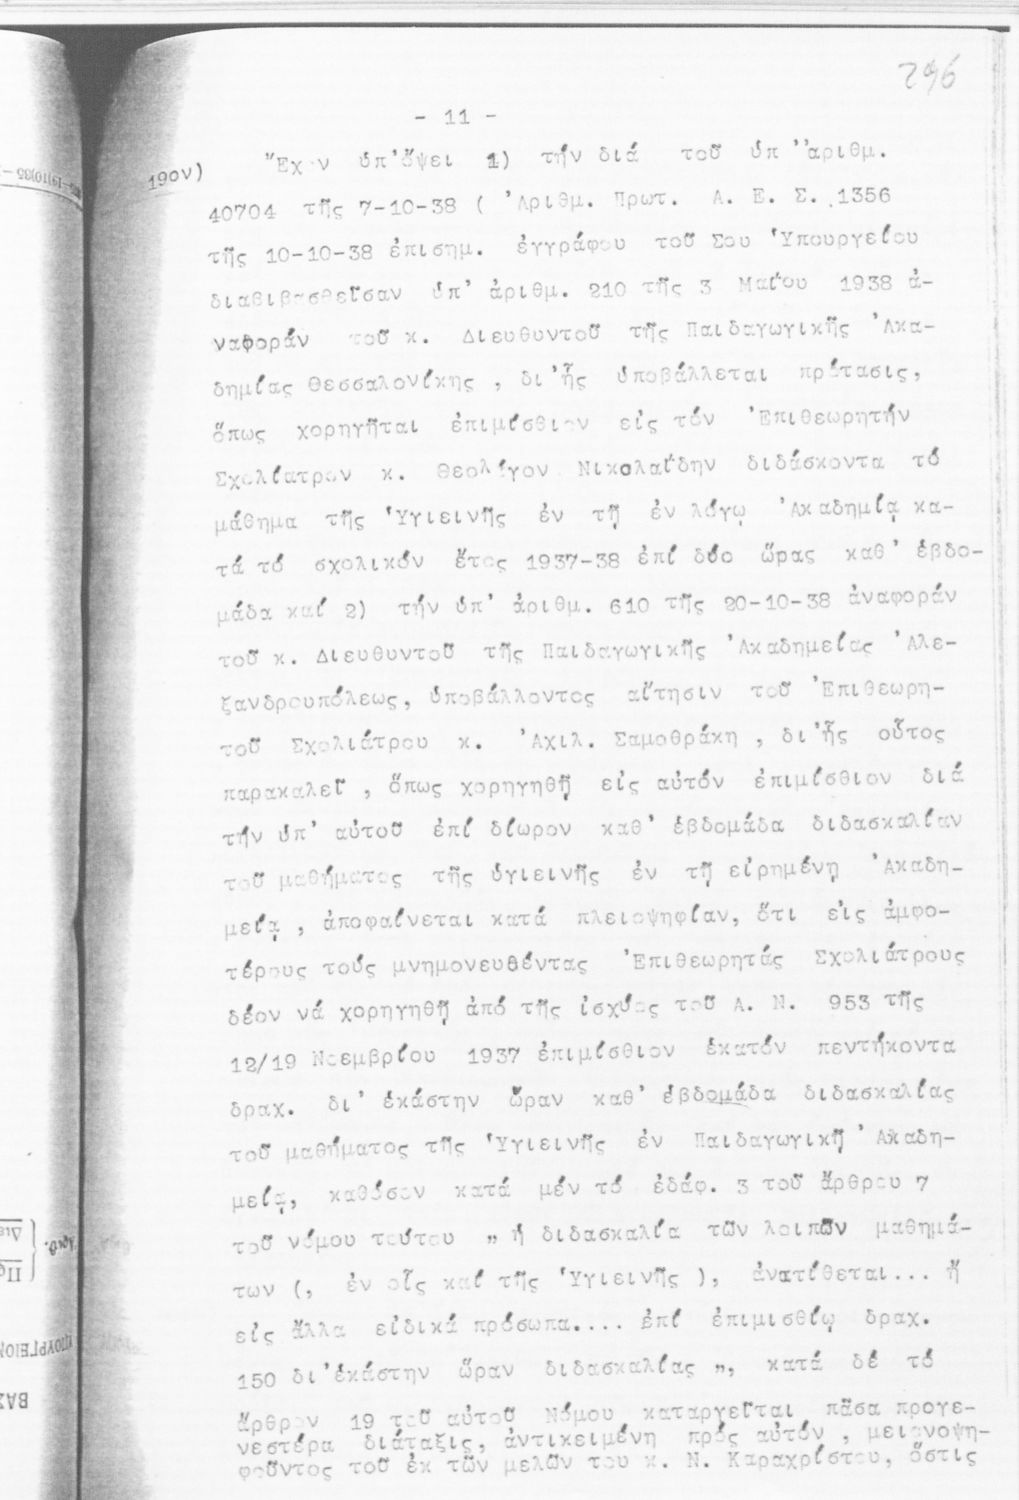 296
- 11 -
19ον) Ἔχον ὑπ'ὄψει 1) τήν διά τοῦ ὑπ'ἀριθμ.
40704 τῆς 7-10-38 ( Ἀριθμ. Πρωτ. Α. Ε. Σ. 1356
τῆς 10-10-38 ἐπισημ. ἐγγράφου τοῦ Σου Ὑπουργείου
διαβιβασθεῖσαν ὑπ' ἀριθμ. 210 τῆς 3 Μαΐου 1938 ἀ-
ναφοράν τοῦ κ. Διευθυντοῦ τῆς Παιδαγωγικῆς Ἀκα-
δημίας Θεσσαλονίκης , δι'ἧς ὑποβάλλεται πρότασις,
ὅπως χορηγῆται ἐπιμίσθιον εἰς τόν Ἐπιθεωρητήν
Σχολίατρον κ. Θεολόγον Νικολαΐδην διδάσκοντα τό
μάθημα τῆς Ὑγιεινῆς ἐν τῇ ἐν λόγῳ Ἀκαδημίᾳ κα-
τά τό σχολικόν ἔτος 1937-38 ἐπί δύο ὥρας καθ' ἑβδο-
μάδα καί 2) τήν ὑπ' ἀριθμ. 610 τῆς 20-10-38 ἀναφοράν
τοῦ κ. Διευθυντοῦ τῆς Παιδαγωγικῆς Ἀκαδημείας Ἀλε-
ξανδρουπόλεως, ὑποβάλλοντος αἴτησιν τοῦ Ἐπιθεωρη-
τοῦ Σχολιάτρου κ. Ἀχιλ. Σαμοθράκη , δι'ἧς οὗτος
παρακαλεῖ , ὅπως χορηγηθῇ εἰς αὐτόν ἐπιμίσθιον διά
τήν ὑπ' αὐτοῦ ἐπί δίωρον καθ' ἑβδομάδα διδασκαλίαν
τοῦ μαθήματος τῆς ὑγιεινῆς ἐν τῇ εἰρημένῃ Ἀκαδη-
μείᾳ , ἀποφαίνεται κατά πλειοψηφίαν, ὅτι εἰς ἀμφο-
τέρους τούς μνημονευθέντας Ἐπιθεωρητάς Σχολιάτρους
δέον νά χορηγηθῇ ἀπό τῆς ἰσχύος τοῦ Α. Ν. 953 τῆς
12/19 Νοεμβρίου 1937 ἐπιμίσθιον ἑκατόν πεντήκοντα
δραχ. δι' ἑκάστην ὥραν καθ' ἑβδομάδα διδασκαλίας
τοῦ μαθήματος τῆς Ὑγιεινῆς ἐν Παιδαγωγικῇ Ἀκαδη-
μείᾳ, καθόσον κατά μέν τό ἐδάφ. 3 τοῦ ἄρθρου 7
τοῦ νόμου τούτου „ ἡ διδασκαλία τῶν λοιπῶν μαθημά-
των (, ἐν οἷς καί τῆς Ὑγιεινῆς ), ἀνατίθεται... ἤ
εἰς ἄλλα εἰδικά πρόσωπα.... ἐπί ἐπιμισθίῳ δραχ.
150 δι'ἑκάστην ὥραν διδασκαλίας „, κατά δέ τό
ἄρθρον 19 τοῦ αὐτοῦ Νόμου καταργεῖται πᾶσα προγε-
νεστέρα διάταξις, ἀντικειμένη πρός αὐτόν , μειονοψη-
φοῦντος τοῦ ἐκ τῶν μελῶν του κ. Ν. Καραχρίστου, ὅστις